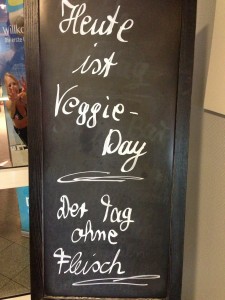 Willko
Heute
ist
Veggie-
Day
Der Tag
ohne
Fleisch